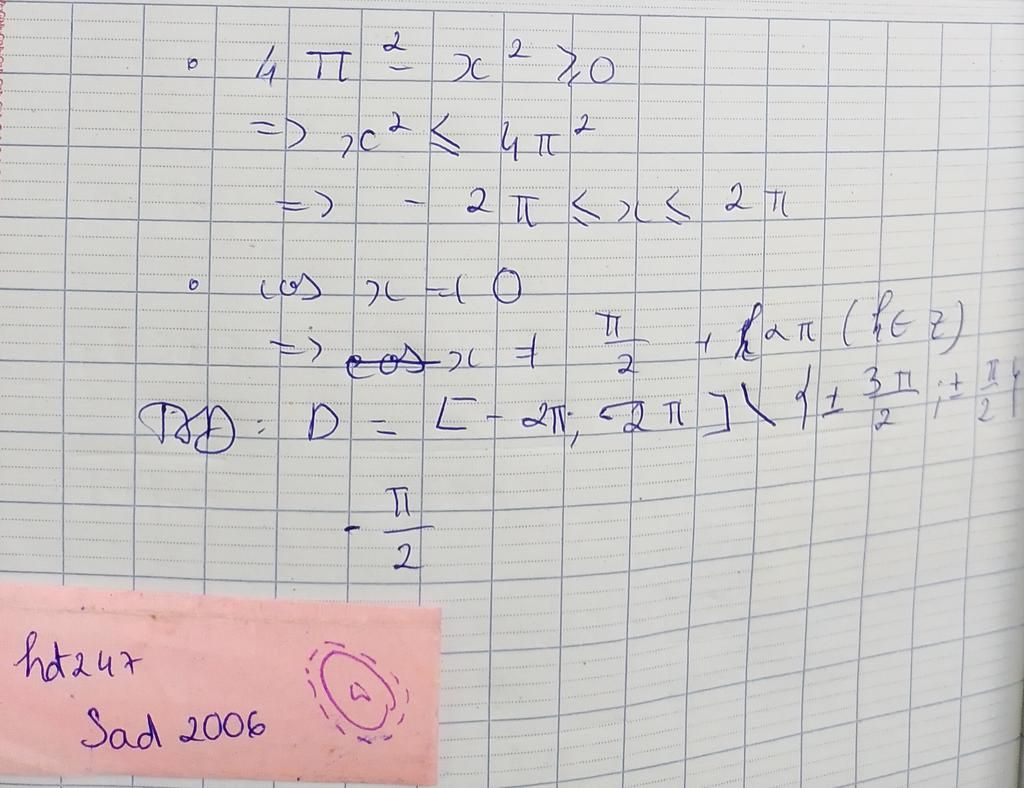 • 4π² - x² ⩾ 0
=> x² ≤ 4π²
=> - 2π ≤ x ≤ 2π
• cos x ≠ 0
=> x ≠ π/2 + k2π (k ∈ Z)
TXĐ: D = [-2π; -2π] \ {± 3π/2 ; ± π/2}
- π/2
hdt247
Sad 2006